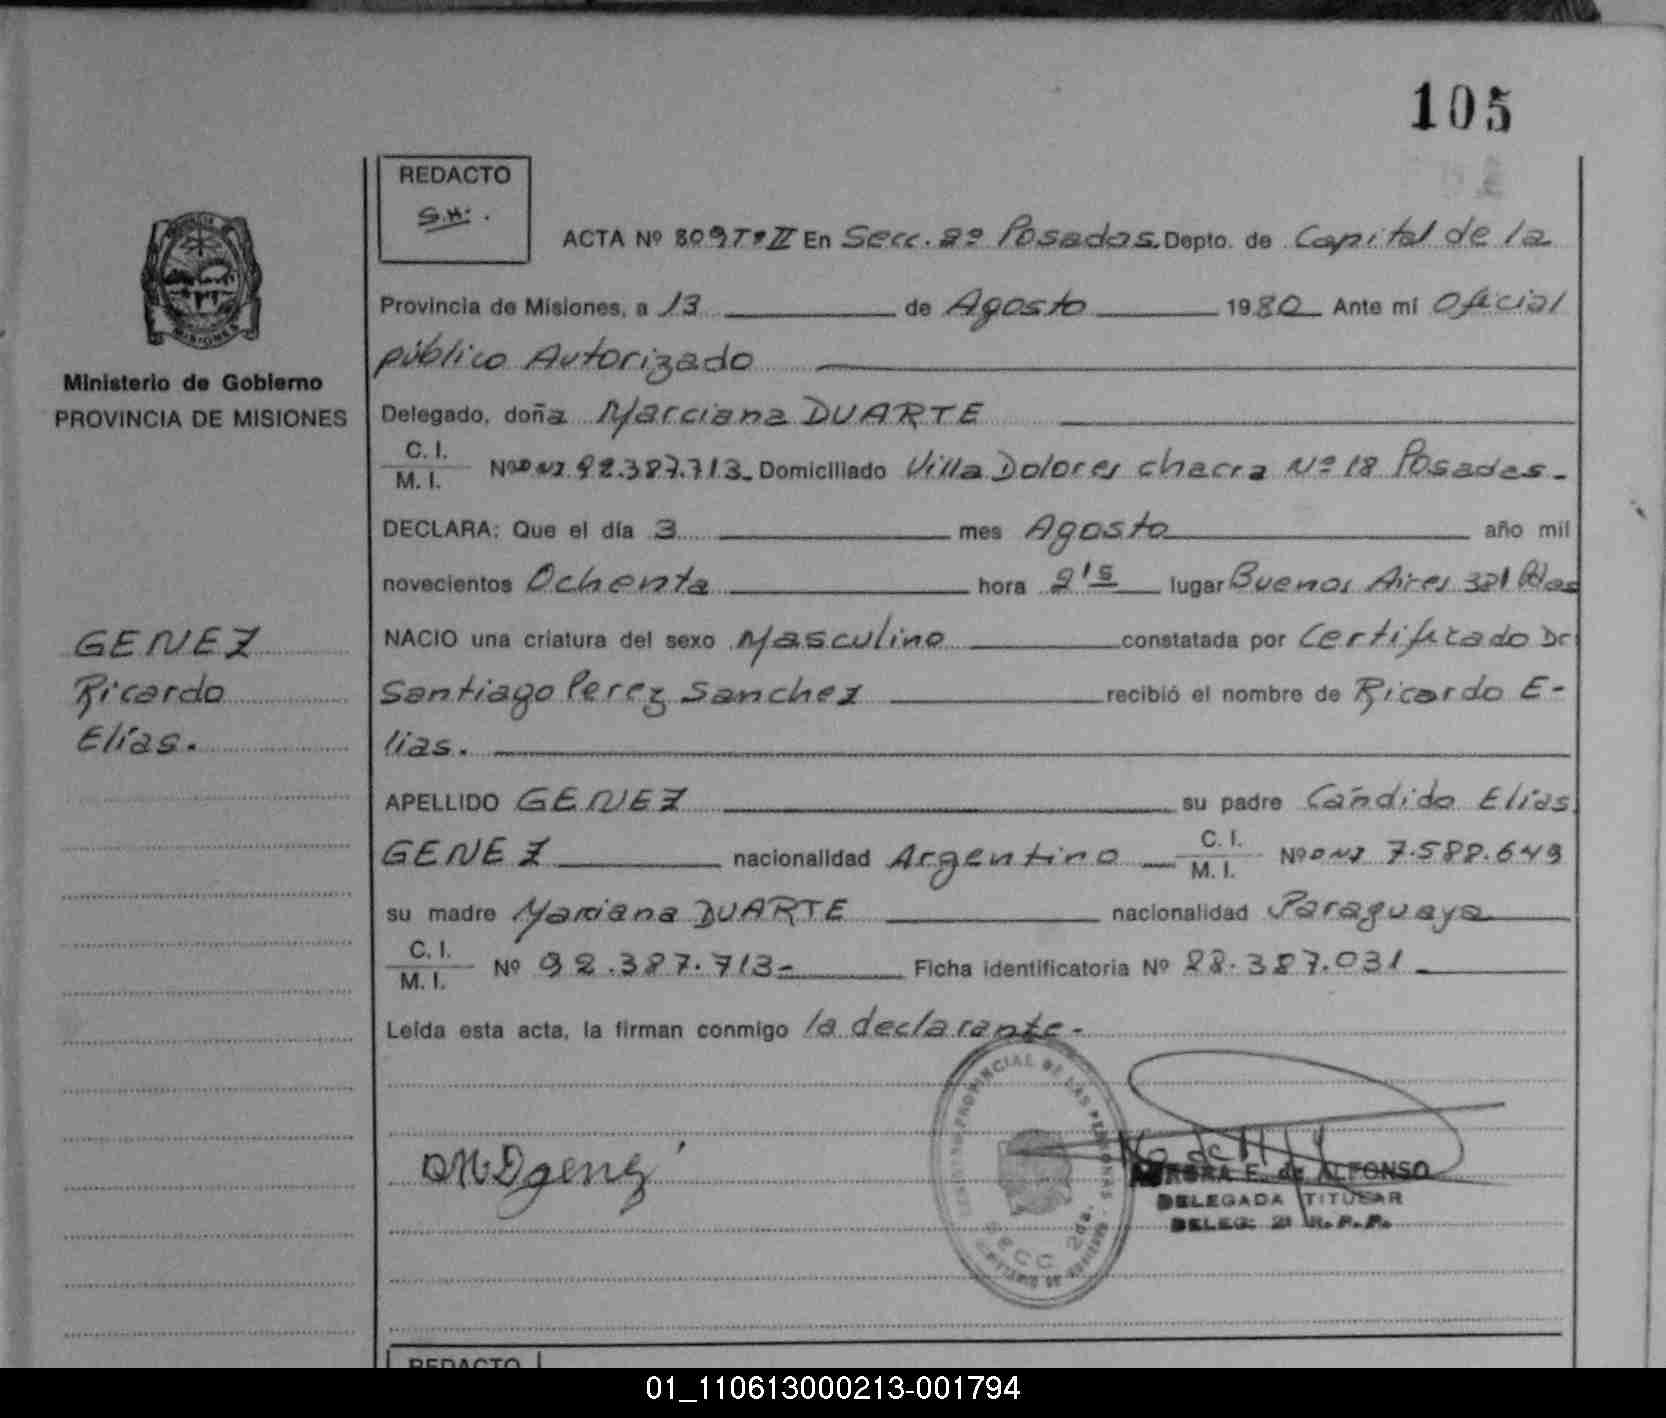 105
REDACTO
S.H.
ACTA Nº 809 Tº II En Secc. 2º Posadas. Depto. de Capital de la
Provincia de Misiones, a 13 de Agosto 1980 Ante mi Oficial
público Autorizado
Ministerio de Gobierno
PROVINCIA DE MISIONES
Delegado, doña Marciana DUARTE
C. I.
M. I. Nº DNI 92.387.713. Domiciliado Villa Dolores chacra Nº 18 Posadas.
DECLARA: Que el día 3 mes Agosto año mil
novecientos Ochenta hora lugar Buenos Aires 381 Pdas
GENEZ
Ricardo
Elías.
NACIO una criatura del sexo Masculino constatada por Certificado Dr
Santiago Perez Sanchez recibió el nombre de Ricardo E-
lias.
APELLIDO GENEZ su padre Cándido Elías
GENEZ nacionalidad Argentino C. I. M. I. Nº DNI 7.588.649
su madre Marciana DUARTE nacionalidad Paraguaya
C. I.
M. I. Nº 92.387.713- Ficha identificatoria Nº 28.387.031
Leída esta acta, la firman conmigo la declarante-
PROVINCIAL DE LAS PERSONAS
SECC 2da.
E. de ALFONSO
DELEGADA TITULAR
DELEG. 2ª R.P.P.
REDACTO
01_110613000213-001794